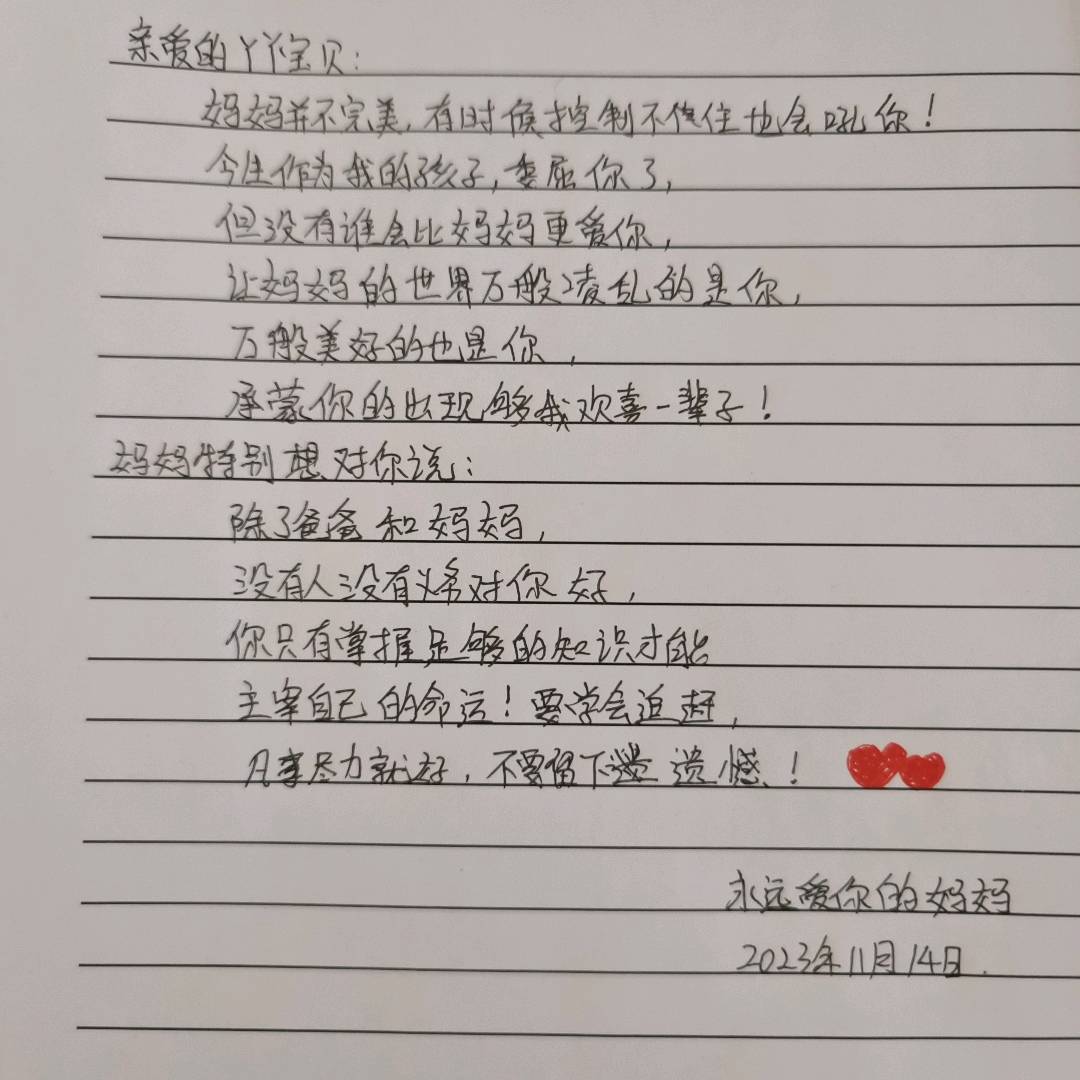 亲爱的丫丫宝贝：
妈妈并不完美，有时候控制不住也会吼你！
今生作为我的孩子，委屈你了，
但没有谁会比妈妈更爱你，
让妈妈的世界万般凌乱的是你，
万般美好的也是你，
承蒙你的出现够我欢喜一辈子！
妈妈特别想对你说：
除了爸爸和妈妈，
没有人没有义务对你好，
你只有掌握足够的知识才能
主宰自己的命运！要学会追赶，
凡事尽力就好，不要留下遗憾！
永远爱你的妈妈
2023年11月14日.